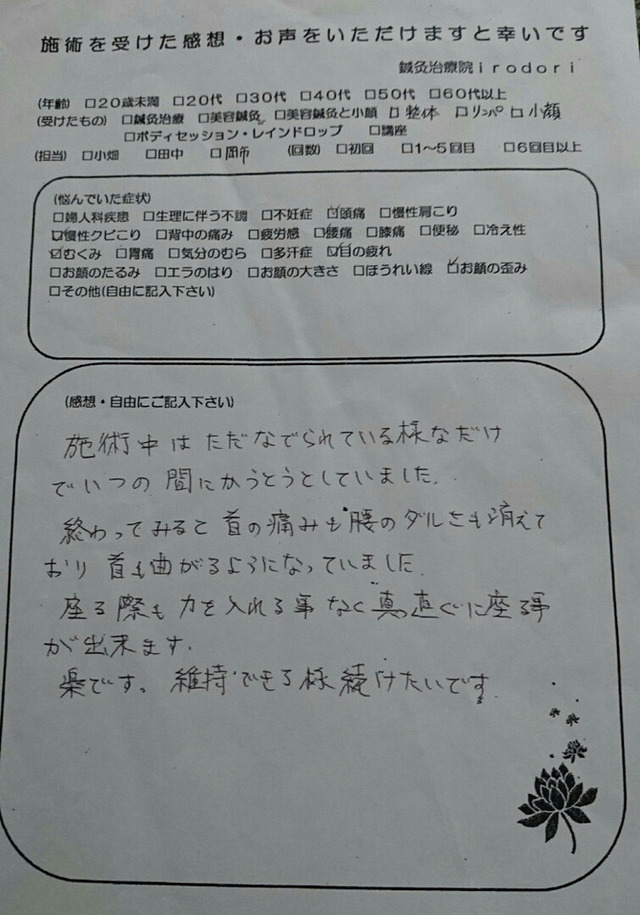 施術を受けた感想・お声をいただけますと幸いです
鍼灸治療院irodori
(年齢) □20歳未満 □20代 □30代 □40代 □50代 □60代以上
(受けたもの) □鍼灸治療 □美容鍼灸 □美容鍼灸と小顔 □整体 □リンパ □小顔
□ボディセッション・レインドロップ □講座
(担当) □小畑 □田中 □岡市 (回数) □初回 □1〜5回目 □6回目以上
(悩んでいた症状)
□婦人科疾患 □生理に伴う不調 □不妊症 ☑頭痛 □慢性肩こり
☑慢性クビこり □背中の痛み □疲労感 ☑腰痛 □膝痛 □便秘 □冷え性
☑むくみ □胃痛 □気分のむら □多汗症 ☑目の疲れ
□お顔のたるみ □エラのはり □お顔の大きさ □ほうれい線 ☑お顔の歪み
□その他(自由に記入下さい)
(感想・自由にご記入下さい)
施術中は ただなでられている様なだけ
でいつの間にかうとうとしていました。
終わってみると首の痛みも腰のダルさも消えて
おり首も曲がるようになっていました。
座る際も力を入れる事なく真っ直ぐに座る事
が出来ます。
楽です。維持できる様続けたいです。